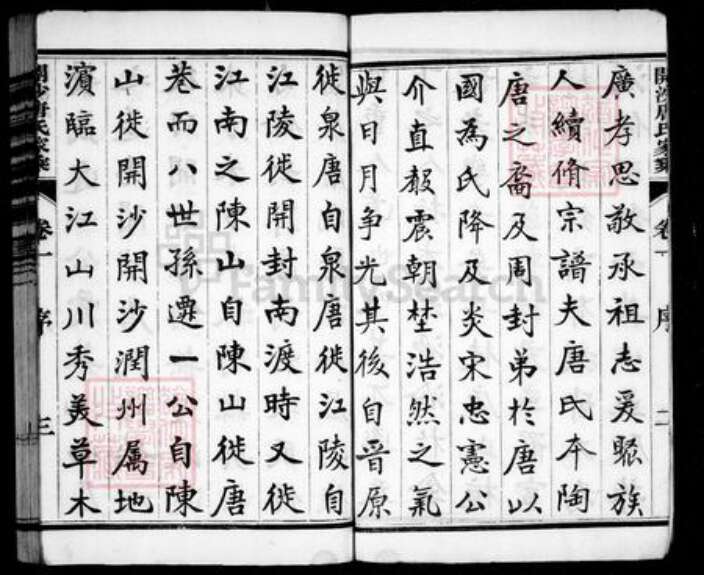 開沙唐氏家乘 卷一 序 二
廣孝思敬承祖志爰聚族
人續脩宗譜夫唐氏本陶
唐之裔及周封弟於唐以
國為氏降及炎宋忠憲公
介直聲震朝埜浩然之氣
與日月争光其後自晉原
徙泉唐自泉唐徙江陵自
江陵徙開封南渡時又徙
江南之陳山自陳山徙唐
巷而八世孫遷一公自陳
山徙開沙開沙潤州属地
濵臨大江山川秀美草木
開沙唐氏家乘 卷一 序 三
FamilySearch